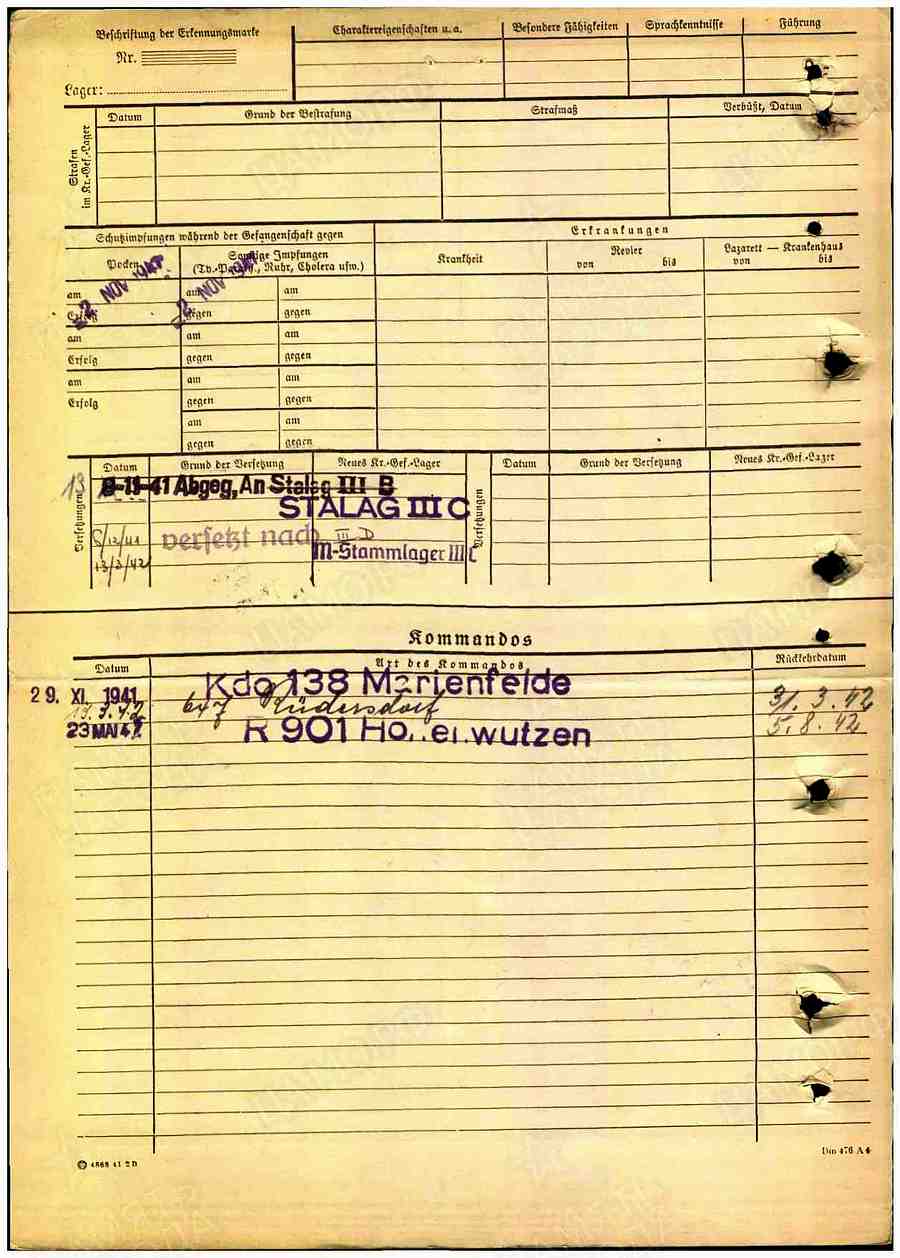 Beschriftung der Erkennungsmarke
Nr.
Lager:
Charaktereigenschaften u. a.
Besondere Fähigkeiten
Sprachkenntnisse
Führung
Strafen im Kr.-Gef.-Lager
Datum
Grund der Bestrafung
Strafmaß
Verbüßt, Datum
Schutzimpfungen während der Gefangenschaft gegen
Erkrankungen
Pocken
Sonstige Impfungen
(Ty.-Paraty., Ruhr, Cholera usw.)
Krankheit
Revier
von bis
Lazarett — Krankenhaus
von bis
am 22 NOV am 22 NOV am
Erfolg gegen gegen
am am am
Erfolg gegen gegen
am am am
Erfolg gegen gegen
am am
gegen gegen
Versetzungen
Datum Grund der Versetzung Neues Kr.-Gef.-Lager
Versetzungen
Datum Grund der Versetzung Neues Kr.-Gef.-Lager
13 8-11-41 Abgeg, An Stalag III B
STALAG III C
8/12/41 versetzt nach III D
13/3/42 M-Stammlager III C
Kommandos
Datum Art des Kommandos Rückkehrdatum
29. XI. 1941 Kdo 138 Marienfelde 31. 3. 42
13. 3. 42 647 Rüdersdorf 5. 8. 42
23 MAI 42 R 901 Hohenwutzen
4868 41 2 D
Din 476 A 4